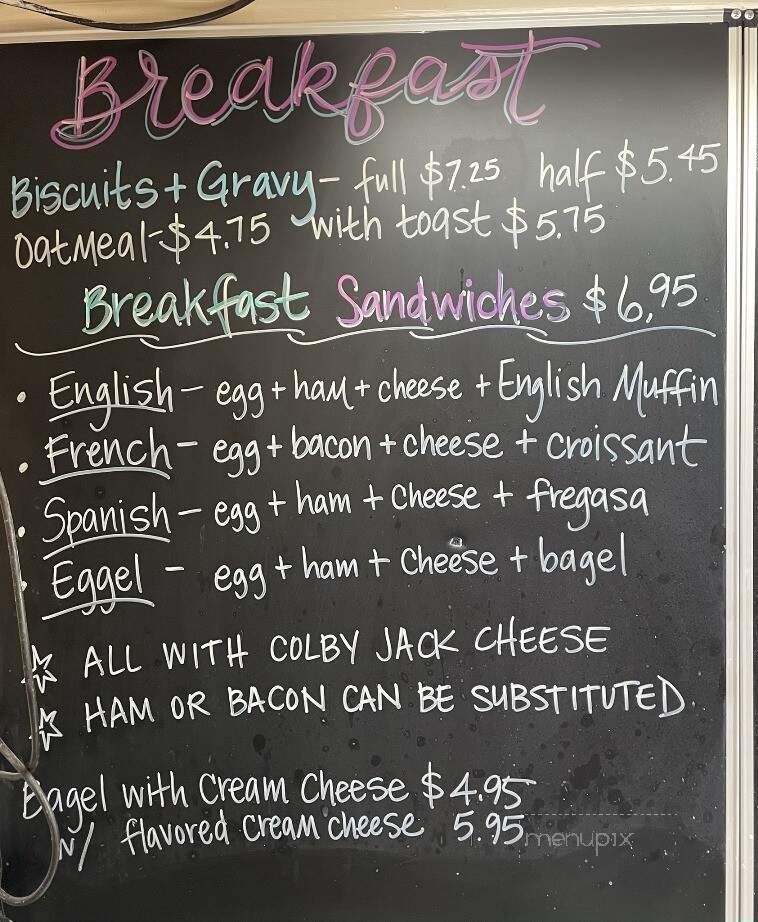 Breakfast
Biscuits + Gravy - full $7.25 half $5.45
Oatmeal - $4.75 with toast $5.75
Breakfast Sandwiches $6.95
• English - egg + ham + cheese + English Muffin
• French - egg + bacon + cheese + croissant
• Spanish - egg + ham + cheese + fregasa
• Eggel - egg + ham + cheese + bagel
☆ ALL WITH COLBY JACK CHEESE
☆ HAM OR BACON CAN BE SUBSTITUTED.
Bagel with Cream Cheese $4.95
w/ flavored cream cheese 5.95
menupix